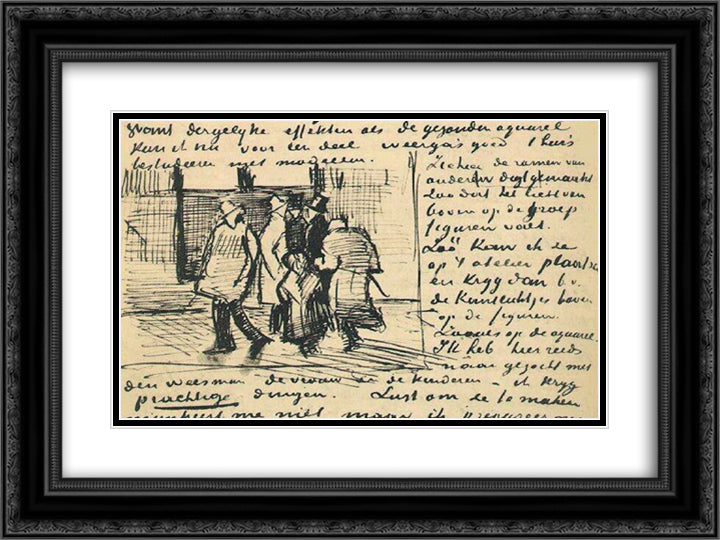 want dergelyke effekten als de gezonden aquarel
kan ik nu voor een deel weergaas goed thuis
bestudeeren met modellen.
de ramen van
onder digt gemaakt
Zoo dat het licht van
boven op de groep
figuren valt.
Zoó kan ik ze
op 't atelier plaatsen
en kryg dan b.v.
de kantlichtjes boven
op de figuren.
Zooals op de aquarel.
Ik heb hier reeds
naar gezocht met
den weesman de vrouw en de kinderen – ik kryg
prachtige dingen. Lust om ze te maken
me niet maar ik